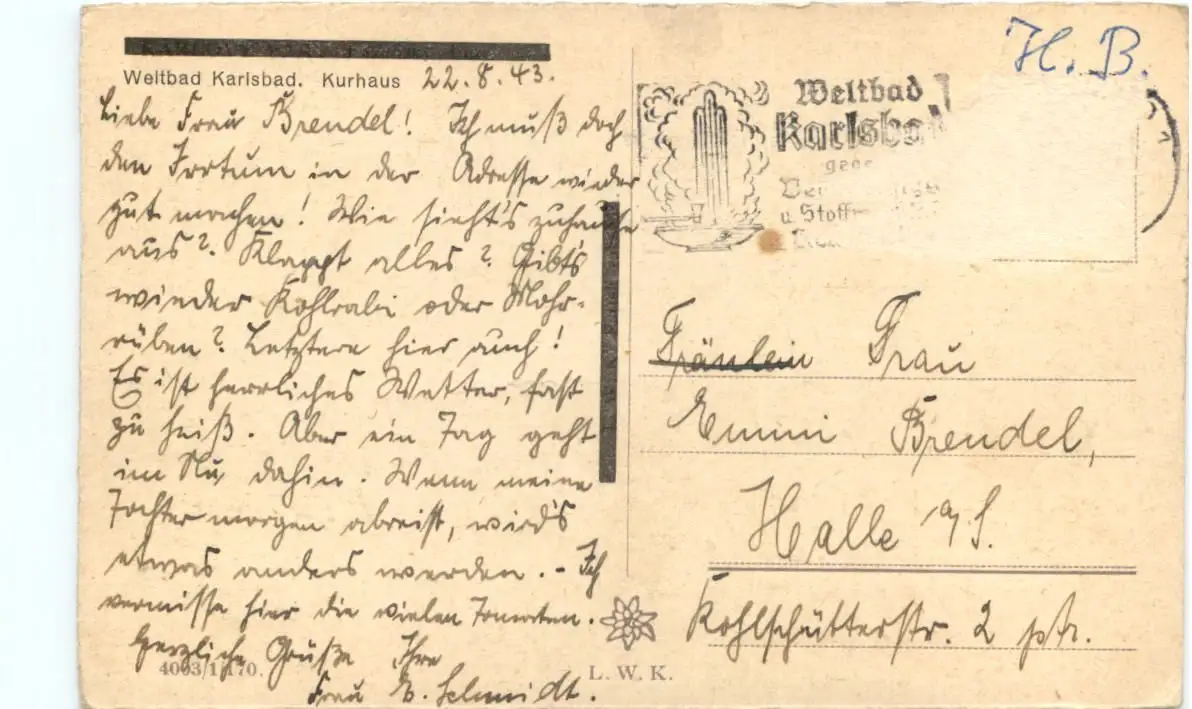 Weltbad Karlsbad. Kurhaus 22.8.43.
Liebe Frau Brendel! Ich muß doch
den Irrtum in der Adresse wieder
gut machen! Wie sieht's zuhause
aus? Klappt alles? Gibt's
wieder Kohlrabi oder Mohr-
rüben? Letztere hier auch!
Es ist herrliches Wetter, fast
zu heiß. Aber ein Tag geht
im Nu dahin. Wenn meine
Tochter morgen abreist, wird's
etwas anders werden. - Ich
vermisse hier die vielen Tomaten.
Herzliche Grüße Ihre
Frau E. Schmidt.
4003/1170.
L. W. K.
H. B.
Weltbad
Karlsba
u. Stoff
Fräulein Frau
Emmi Brendel,
Halle a/S.
Kohlschütterstr. 2 ptr.